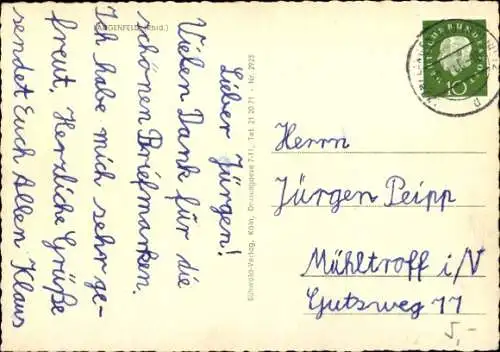 LANGENFELD (Rhld.)
Lieber Jürgen!
Vielen Dank für die
schönen Briefmarken.
Ich habe mich sehr ge-
freut. Herzliche Grüße
sendet Euch Allen Klaus
Schwalb-Verlag, Köln, 7-11, Tel. 21 20 71 · Nr. 7925
DEUTSCHE BUNDESPOST
10
Herrn
Jürgen Peipp
Mühltroff i/V
Gutsweg 11
5,-